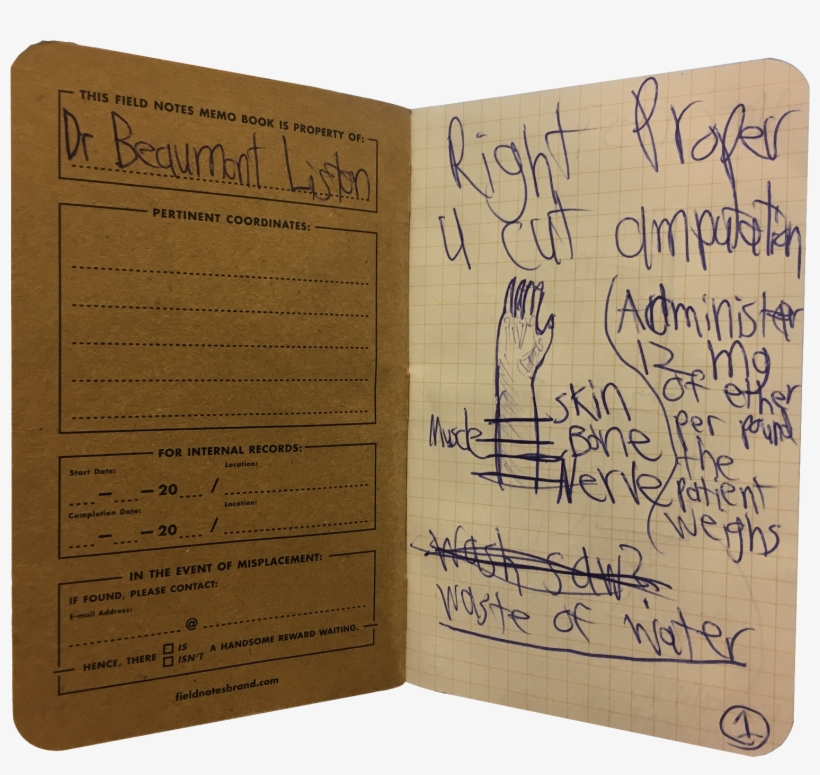 THIS FIELD NOTES MEMO BOOK IS PROPERTY OF:
Dr Beaumont Liston
PERTINENT COORDINATES:
FOR INTERNAL RECORDS:
Start Date: Location:
— — 20 /
Completion Date: Location:
— — 20 /
IN THE EVENT OF MISPLACEMENT:
IF FOUND, PLEASE CONTACT:
E-mail Address:
@
HENCE, THERE ☐ IS ☐ ISN'T A HANDSOME REWARD WAITING.
fieldnotesbrand.com
Right Proper
U cut amputation
Administer
12 mg
of ether
per pound
the
patient
weighs
skin
Muscle
Bone
Nerve
Wash saw?
waste of water
1